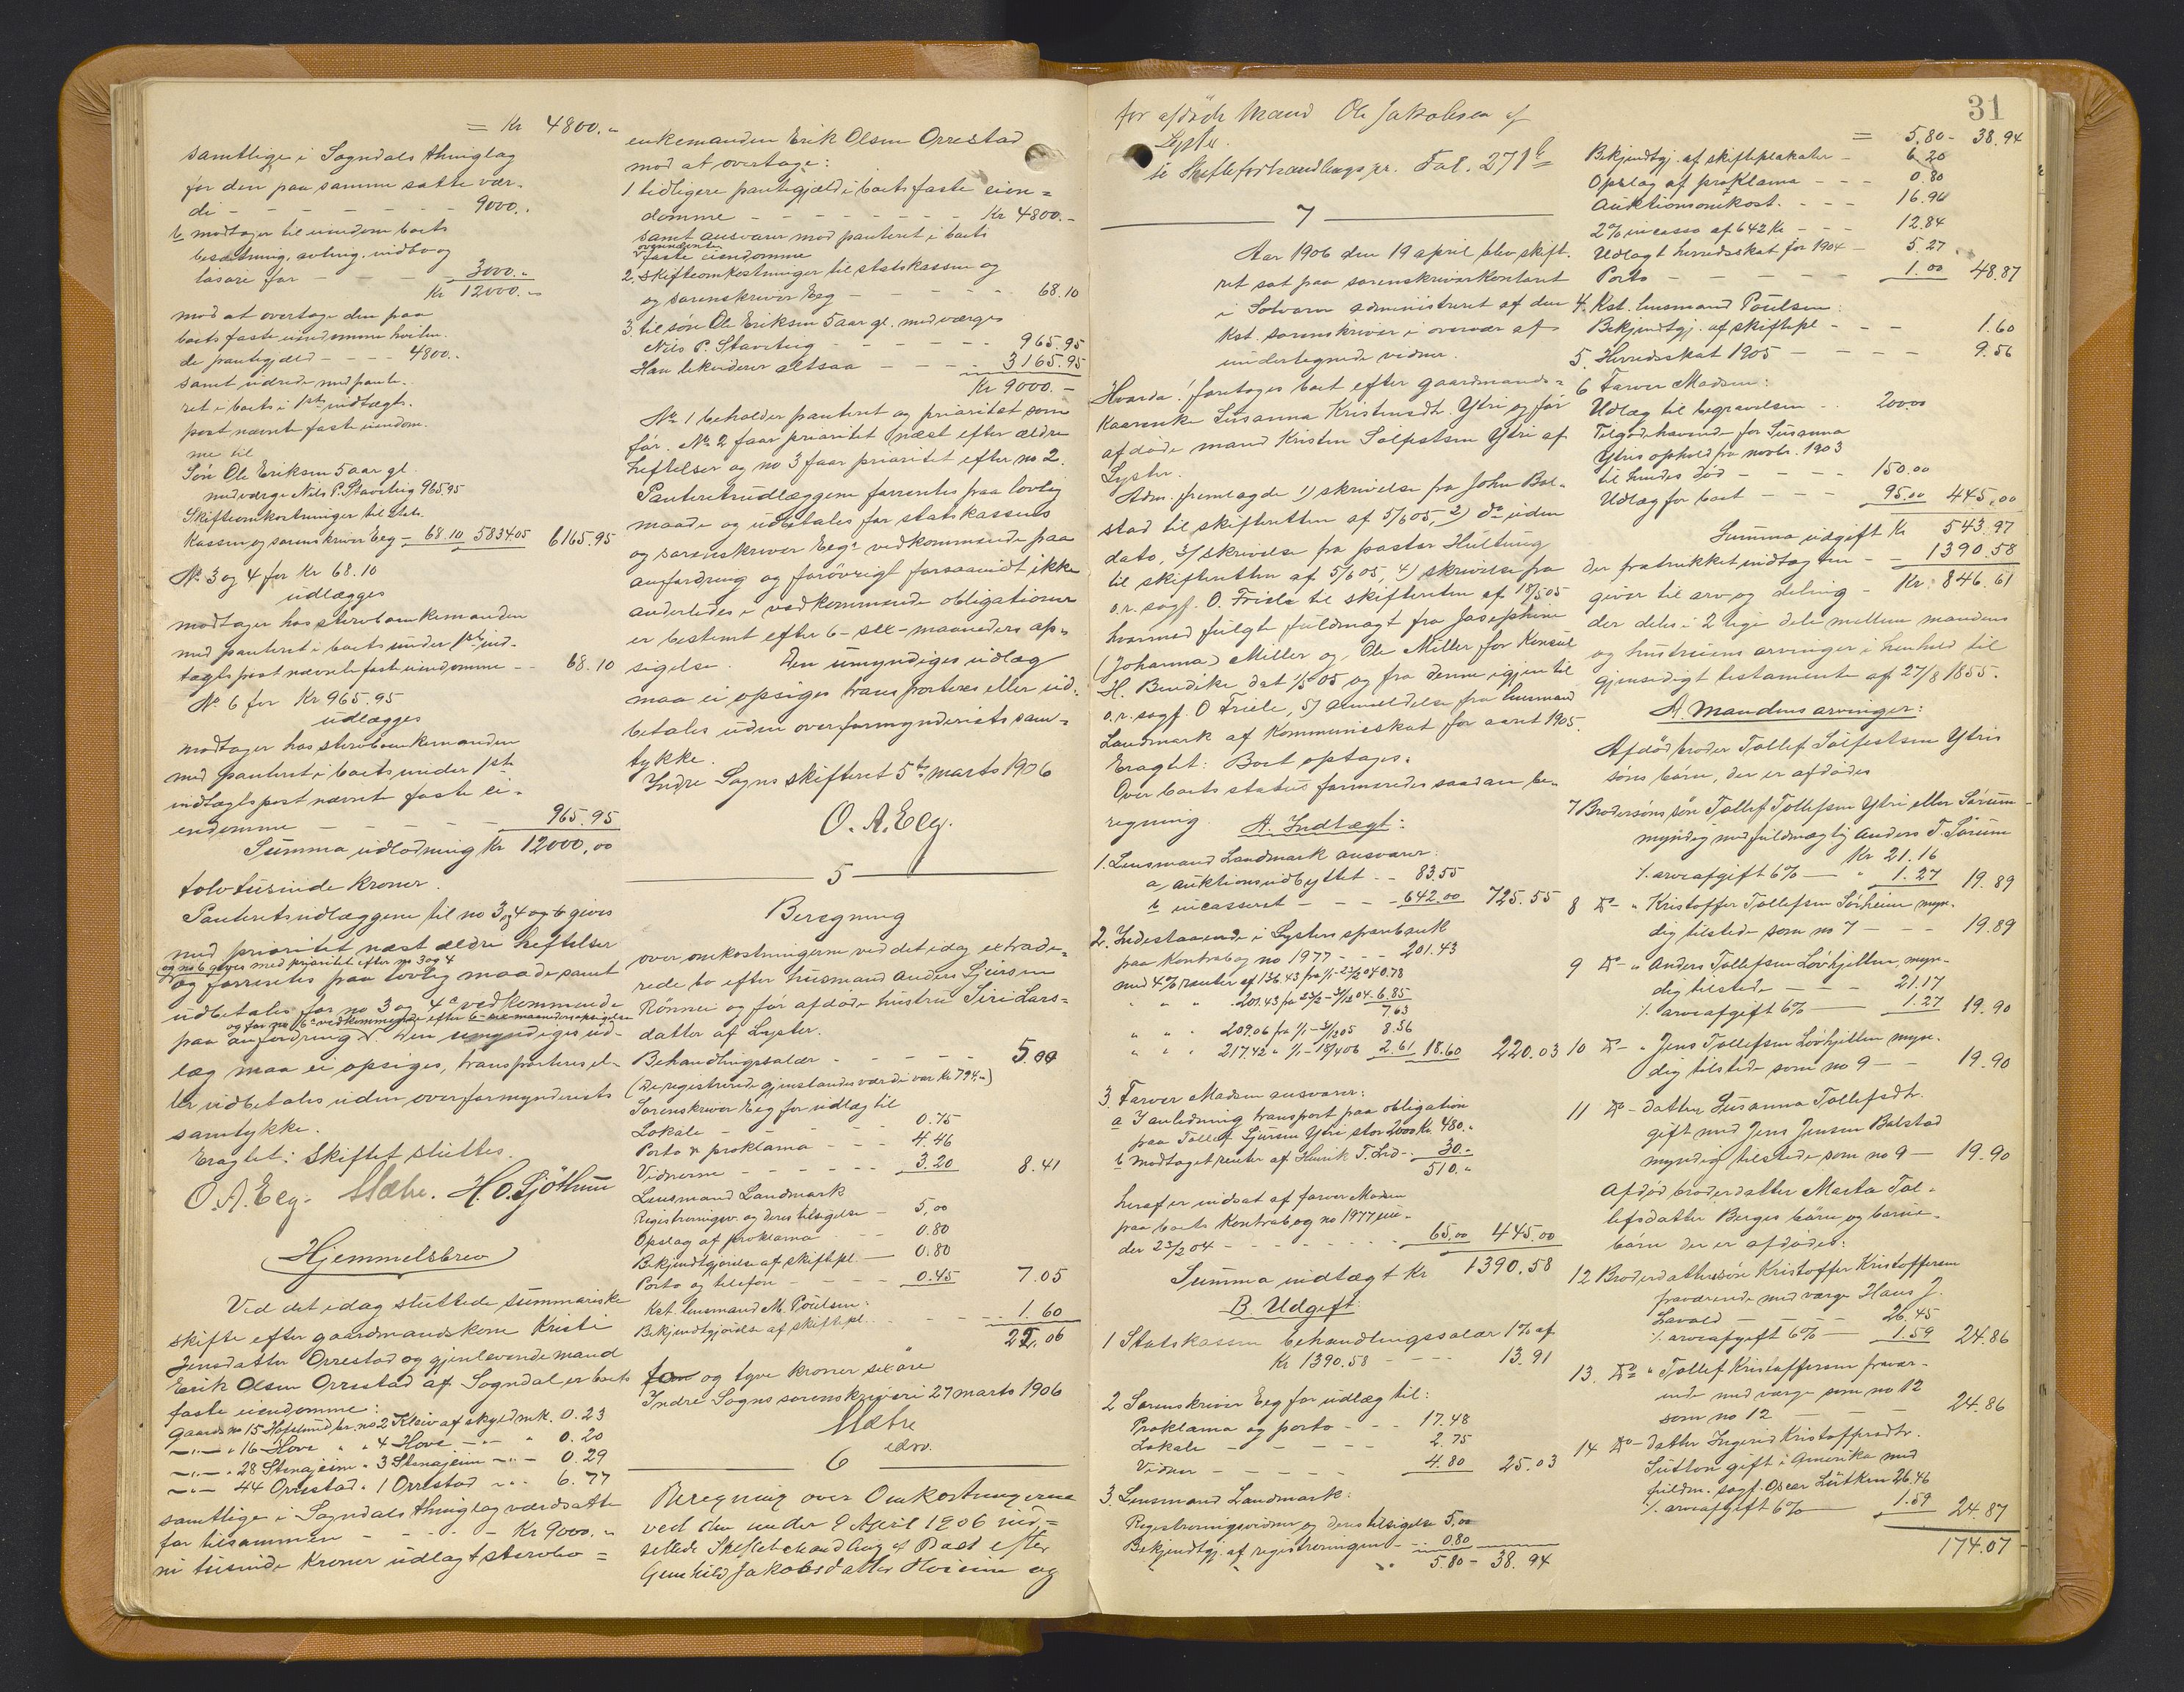 = Kr 4800.-
samtlige i Sogndals thinglag
for den paa samme satte vær-
di - - - - - - 9000.-
b modtager til eiendom boets
besætning, avling, indbo og
løsøre for - - - 3000.-
Kr 12000.-
mod at overtage den paa
boets faste eiendomme heften-
de pantegjæld - - - 4800.-
samt udrede med pante-
ret i boets i 1ste indtægts-
post nævnte faste eiendom-
me til
Søn Ole Eriksen 5 aar gl.
med værge Nils P. Stavetieg 965.95
Skifteomkostninger til stats-
kassen og sorenskriver Eeg - 68.10 5834.05 6165.95
No 3 og 4 for Kr 68.10
udlægges
modtager hos stervboenkemanden
med panteret i boets under 1ste ind-
tægtspost nævnte faste eiendomme - - 68.10
No 6 for Kr 965.95
udlægges
modtager hos stervboenkemanden
med panteret i boets under 1ste
indtægtspost nævnte faste ei-
endomme - - - - 965.95
Summa udlodning Kr 12000,00
tolvtusinde kroner.
Panteretsudlæggene til no 3 og 4 og 6 gives
med prioritet næst ældre heftelser
og no 6 gives med prioritet efter no 3 og 4
og forrentes paa lovlig maade samt
udbetales for no 3 og 4s vedkommende
og for no 6s vedkommende efter 6-sex maaneders opsigelse
paa anfordring. Den umyndiges ud-
læg maa ei opsiges, transporteres el-
ler udbetales uden overformynderiets
samtykke.
Eragtet: Skiftet sluttes.
O.A. Eeg. Mæhre. H.O. Gjöthun
Hjemmelsbrev
Ved det idag sluttede summariske
skifte efter gaardmandskone Kristi
Jensdatter Orrestad og gjenlevende mand
Erik Olsen Orrestad af Sogndal er boets
faste eiendomme:
Gaards no 15 Hofslund br. no 2 Kleiv af skyld mk. 0.23
-"- " 16 Hove " " 4 Hove -"- " 0.20
-"- " 28 Stenajeim " 3 Stenajeim -"- 0.29
-"- 44 Orrestad " 1 Orrestad -"- 6.77
samtlige i Sogndals thinglag værdsatte
for tilsammen - - - - Kr 9000.-
ni tusinde kroner udlagt stervbo =
enkemanden Erik Olsen Orrestad
mod at overtage:
1 tidligere pantegjæld i boets faste eien =
domme - - - - - - Kr 4800.-
samt ansvarer mod panteret i boets
ovennævnte
faste eiendomme
2. Skifteomkostninger til statskassen og
og sorenskriver Eeg - - - - - 68.10
3. til søn Ole Eriksen 5 aar gl. med værge
Nils P. Stavetieg - - - - - 965.95
Han likviderer altsaa - - - 3165.95
Kr 9000.-
No 1 beholder panteret og prioritet som
før. No 2 faar prioritet næst efter ældre
heftelser og no 3 faar prioritet efter no 2.
Panteretsudlæggene forrentes paa lovlig
maade og udbetales for statskassens
og sorenskriver Eegs vedkommende paa
anfordring og forövrigt forsaavidt ikke
anderledes i vedkommende obligationer
er bestemt efter 6 - sex - maaneders op-
sigelse. Den umyndiges udlæg
maa ei opsiges transporteres eller ud-
betales uden overformynderiets sam-
tykke.
Indre Sogns skifteret 5te marts 1906
O.A. Eeg.
5
Beregning
over omkostningerne ved det idag extrade-
rede bo efter husmand Anders Sjursen
Rönnei og før afdøde hustru Siri Lars-
datter af Lyster.
Behandlingssalær - - - - - 5.00
(De registrerede gjenstandes værdi var Kr 794.-)
Sorenskriver Eeg for udlæg til
Lokale - - - - - 0.75
Porto & proklama - - - 4.46
Vidnerne - - - - - 3.20 8.41
Lensmand Landmark
Registreringsv. og deres tilsigelse - 5,00
Opslag af proklama - - 0.80
Bekjendtgjörelse af skiftepl. - 0.80
Porto og telefon - - - 0.45 7.05
Kst. lensmand M. Poulsen:
Bekjendtgjörelse af skiftepl. - - - 1.60
22,06
to og tyve kroner sex øre
Indre Sogns sorenskriveri 27 marts 1906
Mæhre
edsv.
6
Beregning over Omkostningerne
ved den under 9 April 1906 ud-
settede Skiftebehandling af Boet efter
Gunhild Jakobsdatter Høieim og
31
for afdöde Mand Ole Jakobsen af
Lyster.
se Skifteforhandlingspr. Fol. 271b
7
Aar 1906 den 19 april blev skift-
ret sat paa sorenskriverkontoret
i Solvorn administreret af den
Kst. sorenskriver i overvær af
undertegnede vidner.
Hvorda! foretoges boet efter gaardmands-
kaarenke Susanna Kristensdt. Ytri og før
afdøde mand Kristen Tolfestsen Ytri af
Lyster.
Adm. fremlagde 1) skrivelse fra John Bol-
stad til skifteretten af 5/6 05, 2) do uden
dato, 3) skrivelse fra pastor Hultung
til skifteretten af 5/6 05, 4) skrivelse fra
o.r. sagf. O. Friele til skifteretten af 18/5 05
hvormed fulgte fuldmagt fra Josephine
(Johanna) Miller og Ole Miller for Konsul
H. Bendike dat 1/5 05 og fra denne igjen til
o.r. sagf. O Friele, 5) anmeldelse fra lensmand
Landmark af kommuneskat for aaret 1905.
Eragtet: Boet optages.
Over boets status formeredes saadan be-
regning. A. Indtægt:
1. Lensmand Landmark ansvarer:
a, auktionsudbyttet - - 83.55
b incasseret - - - - 642.00 725.55
2. Indestaaende i Lysters sparebank
paa kontrabog no 1977 - - - 201.43
med 4% renter af 136.43 fra 1/1-23/2 04 0.78
" " " 201.43 fra 23/2 - 31/12 04 6.85
7.63
" " " 209.06 fra 1/1 - 31/12 05 8.36
" " " 217.42 " 1/1 - 18/4 06 2.61 18.60 220.03
3. Farver Madsen ansvarer:
a I anledning transport paa obligation
paa Tollef Sjursen Ytri stor 2000 Kr. 480.-
b Modtaget renter af Henrik T. Lid - - 30.-
510.-
heraf er indsat af farver Madsen
paa boets kontrabog no 1977 un-
der 23/2 04 - - - - - - - 65.00 445.00
Summa indtægt Kr 1390.58
B. Udgift:
1 Statskassen behandlingssalær 1% af
Kr 1390.58 - - - - 13.91
2 Sorenskriver Eeg for udlæg til:
Proklama og porto - - - 17.48
Lokale - - - - - 2.75
Vidner - - - - - 4.80 25.03
3. Lensmand Landmark:
Registreringsvidner og deres tilsigelse 5,00
Bekjendtgj. af registreringen - - 0.80
5.80 - 38.94
= 5.80 - 38.94
Bekjendtgj. af skifteplakater - 6.20
Opslag af proklama - - - 0.80
Auktionsomkost. - - - 16.96
2% incasso af 642 Kr - - - 12.84
Udlagt herredsskat for 1904 - 5.27
Porto - - - - - - 1.00 48.87
4. Kst. lensmand Poulsen:
Bekjendtgj. af skiftepl - - - 1.60
5. Herredsskat 1905 - - - - 9.56
6 Farver Madsen:
Udlæg til begravelsen - - 200.00
Tilgodehavende for Susanna
Ytris ophold fra novbr. 1903
til hendes död - - - - 150.00
Udlæg for boet - - - 95.00 445,00
Summa udgift Kr 543.97
der fratrukket indtægten - - 1390.58
giver til arv og deling - Kr. 846.61
der deles i 2 lige dele mellem mandens
og hustruens arvinger i henhold til
gjensidigt testamente af 27/8 1855.
A. Mandens arvinger:
Afdød broder Tollef Tolfestsen Ytris
söns börn, der er afdødes
7 Brodersøns søn Tollef Tollefsen Ytri eller Sørum
myndig med fuldmægtig Anders T. Sørum
Kr 21.16
% arveafgift 6% - " 1.27 19.89
8 Do - " Kristoffer Tollefsen Sørheim myn-
dig tilstede som no 7 - - - 19.89
9 Do - " Anders Tollefsen Lövhjellen, myn-
dig tilstede - - - 21.17
% arveafgift 6% - 1.27 19.90
10 Do - " Jens Tollefsen Lövhjellen myn-
dig tilstede som no 9 - - 19.90
11 Do - datter Susanna Tollefsdt.
gift med Jens Jensen Bolstad
myndig tilstede som no 9 - 19.90
Afdød broderdatter Marta Tol-
lefsdatter Berges børn og barne-
börn der er afdødes:
12 Broderdattersøn Kristoffer Kristoffersen
fraværende med værge Hans J.
Lavold - - - - 26.45
% arveafgift 6% - 1.59 24.86
13. Do " Tollef Kristoffersen fravær-
ende med værge som no 12
som no 12 - - - - 24.86
14 Do - datter Ingerid Kristoffersdt.
Sutton gift i Amerika med
fuldm. sagf. Oscar Lütken 26.46
% arveafgift 6% - 1.59 24.87
174.07